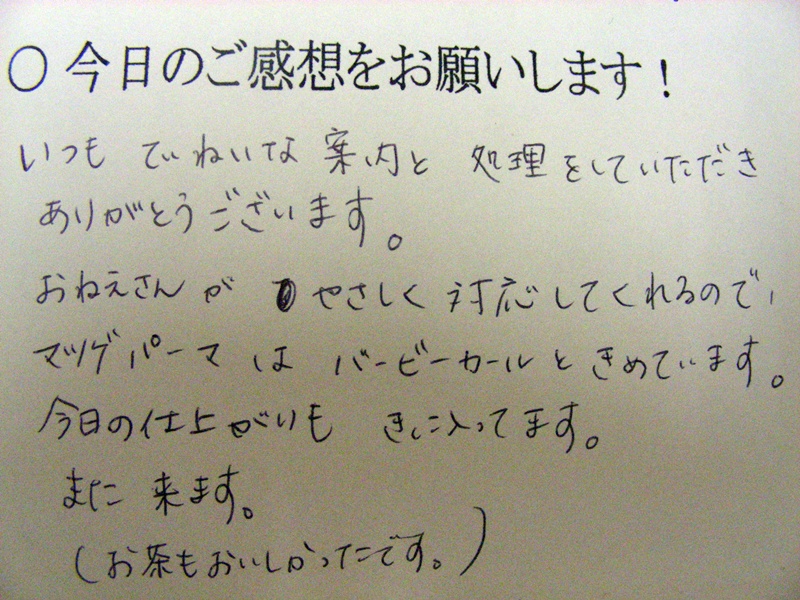 ○今日のご感想をお願いします！
いつも ていねいな 案内と 処理をしていただき
ありがとうございます。
おねえさんが やさしく 対応してくれるので、
マツゲパーマ は バービーカールと きめています。
今日の仕上がりも きに入ってます。
また 来ます。
(お茶もおいしかったです。)